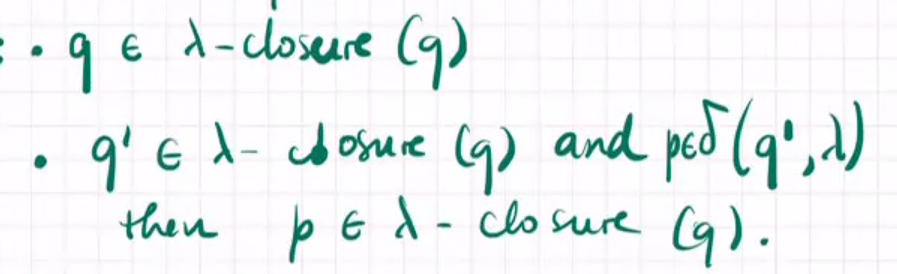 : • q ∈ λ-closure (q)
• q' ∈ λ- closure (q) and p∈δ(q', λ)
then p ∈ λ - closure (q).